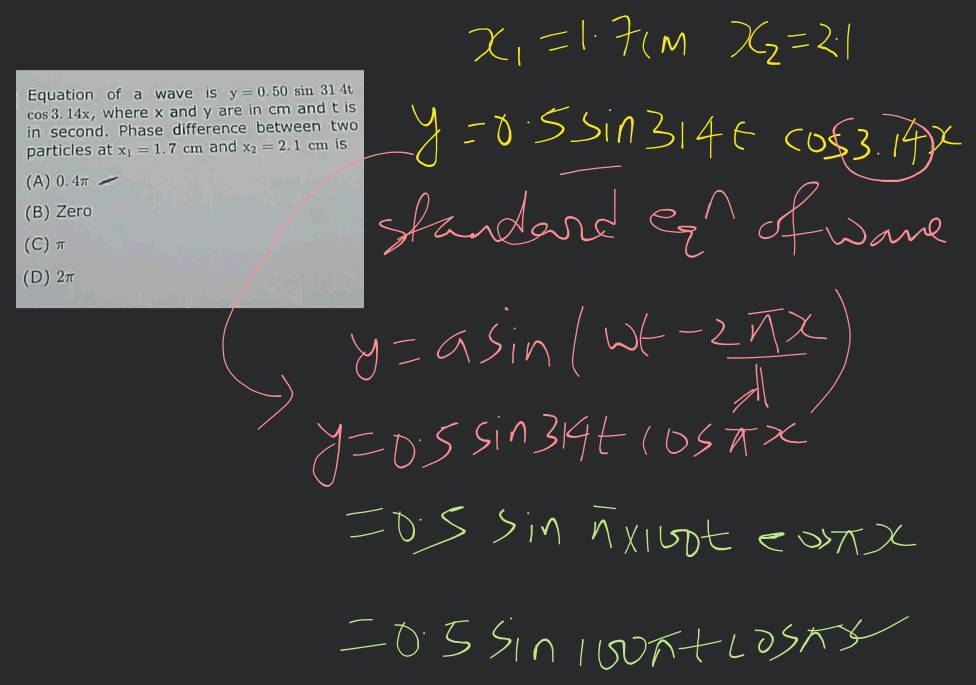 x₁ = 1.7cm x₂ = 2.1
Equation of a wave is y = 0.50 sin 31 4t
cos 3. 14x, where x and y are in cm and t is
in second. Phase difference between two
particles at x₁ = 1.7 cm and x₂ = 2.1 cm is
(A) 0. 4π
(B) Zero
(C) π
(D) 2π
y = 0.5 sin 314t cos 3.14x
standard eqⁿ of wave
y = a sin (wt - 2πx/λ)
y = 0.5 sin 314t cos πx
= 0.5 sin π x 100t cos πx
= 0.5 sin 100πt cos πx